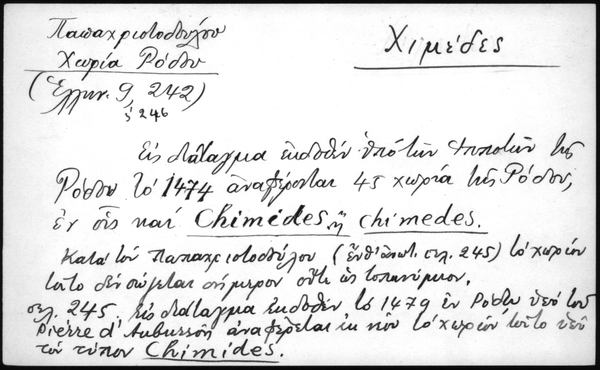 Παπαχριστοδούλου
Χωρία Ρόδου
(Ἑλλην. 9, 242)
ἑ 246
Χιμέδες
Εἰς διάταγμα ἐκδοθέν ὑπό τῶν Ἱπποτῶν τῆς
Ρόδου τό 1474 ἀναφέρονται 45 χωρία τῆς Ρόδου,
ἐν οἷς καί Chimides ἤ Chimedes.
Κατά τόν Παπαχριστοδούλου (ἔνθ' ἀνωτ. σελ. 245) τό χωρίον
τοῦτο δέν σῴζεται σήμερον οὔτε ὡς τοπωνύμιον.
σελ. 245. Εἰς διάταγμα ἐκδοθέν τό 1479 ἐν Ρόδῳ ὑπό τοῦ
Pierre d'Aubusson ἀναφέρεται τό χωρίον τοῦτο ὑπό
τόν τύπον Chimides.